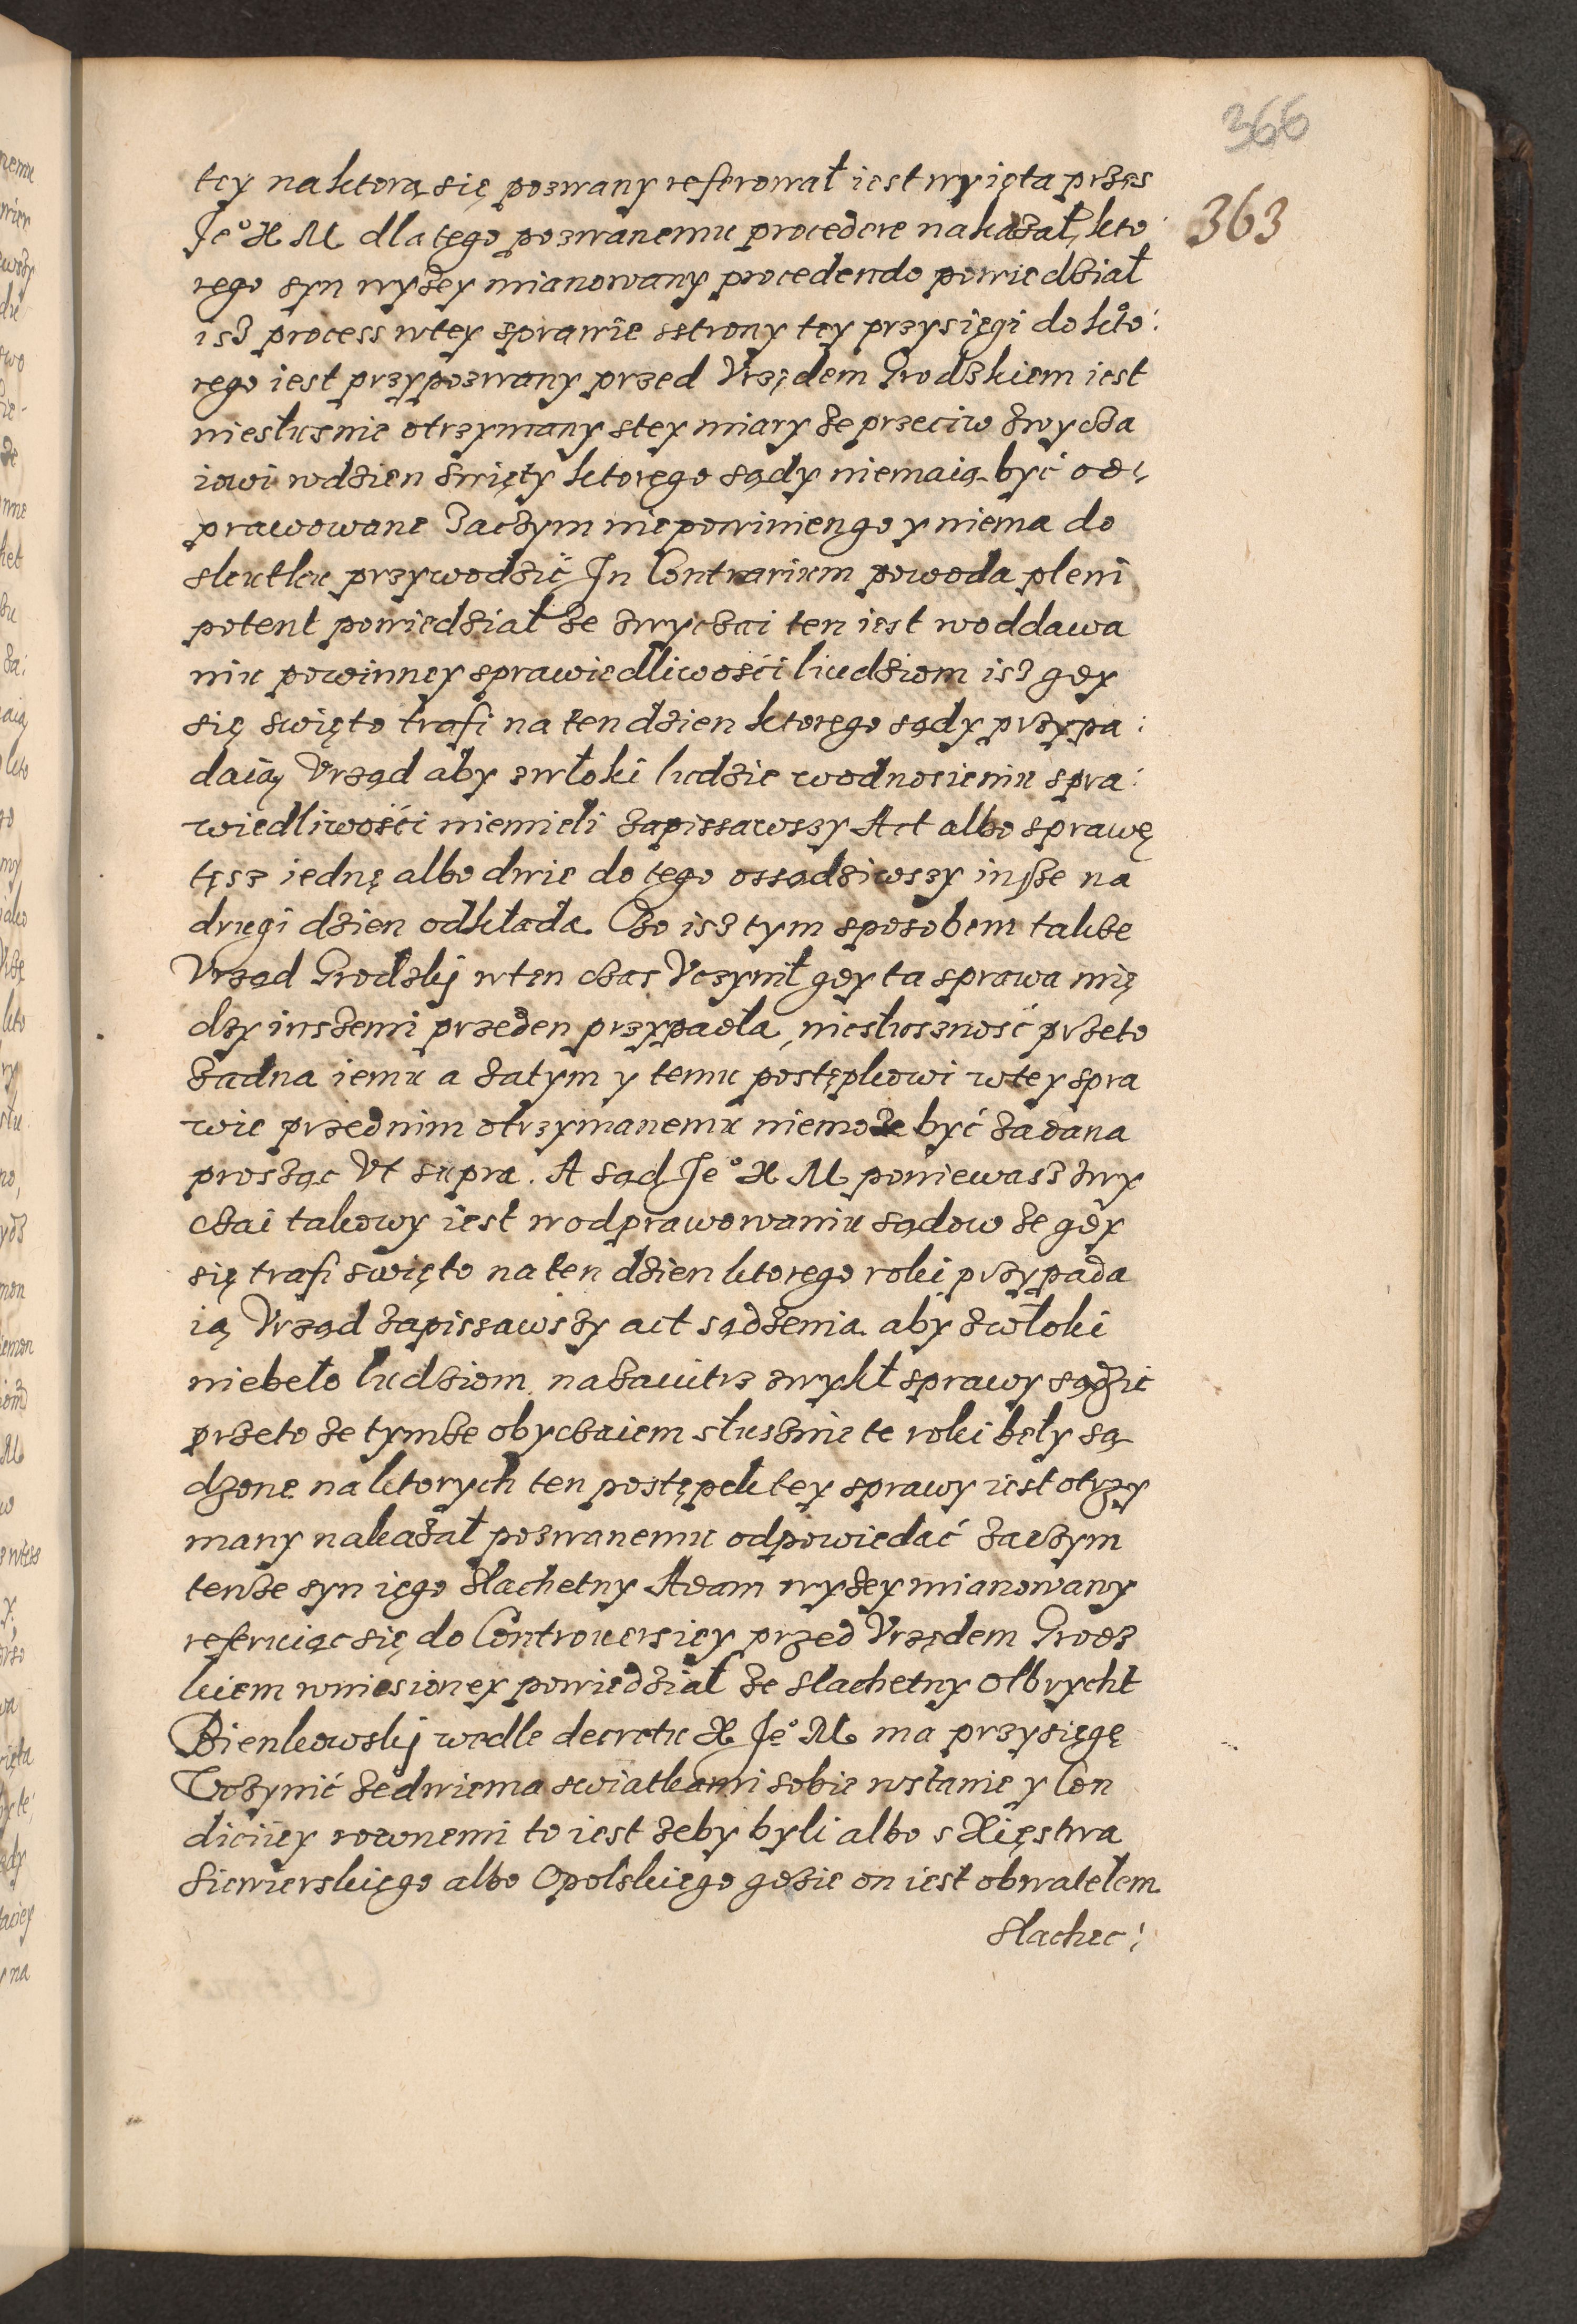 366
363
tey na ktorą się pozwany referował iest wyięta przes
Je° X M dla tego pozwanemu procedere nakazał, kto
rego syn wyżey mianowany procedendo powiedział
isz process wtey sprawie sstrony tey przysięgi do kto:
rego iest przypozwany przed Vrzędem Grodzkiem iest
niesłusnie otrzymany stey miary że przeciw zwycza
iowi wdzien swięty ktorego sądy niemaią być od:
prawowane Zaczym nie powinien go y niema do
skutku przywodzić Jn Contrarium powoda pleni
potent powiedział że zwyczai ten iest woddawa
niu powinney sprawiedliwości liudziom isz gdy
się swięto trafi na ten dzien ktorego sądy przypa:
daią Vrząd aby zwłoki ludzie wodnosieniu spra:
wiedliwości niemieli zapissawszy Act albo sprawę
tęsz iednę albo dwie do tego ossądziwszy insze na
drugi dzien odkłada. Czo isz tym sposobem także
Vrząd Grodzkj wten czas Vczynił gdy ta sprawa mię
dzy inszemi przeden przypadła, niesłusznosć przeto
żadna iemu a zatym y temu postępkowi wtey spra
wie przednim otrzymanemu niemoże być zadana
prosząc Vt supra. A sąd Je° X M poniewasz zwy
czai takowy iest wodprawowaniu sądow że gdy
się trafi swięto na ten dzien ktorego roki przypada
ią Vrząd zapissawszy act sądzenia aby zwłoki
niebeło ludziom nazaiutrz zwykł sprawy sądzic
przeto że tymże obyczaiem słusznie te roki beły są
dzone na ktorych ten postępek tey sprawy iest otrzy
many nakazał pozwanemu odpowiedać zaczym
tenże syn iego slachetny Adam wyżey mianowany
referuiąc się do Controuersiey przed Vrzędem Grodz
kiem wniesioney powiedział że slachetny Olbrycht
Bienkowskj wedle decretu X Je° M ma przysięgę
Vczynić ze dwiema swiatkami sobie wstanie y Con
diciiey rownemi to iest żeby byli albo s Xięstwa
Siewierskiego albo Opolskiego gdzie on iest obwatelem
slachec: